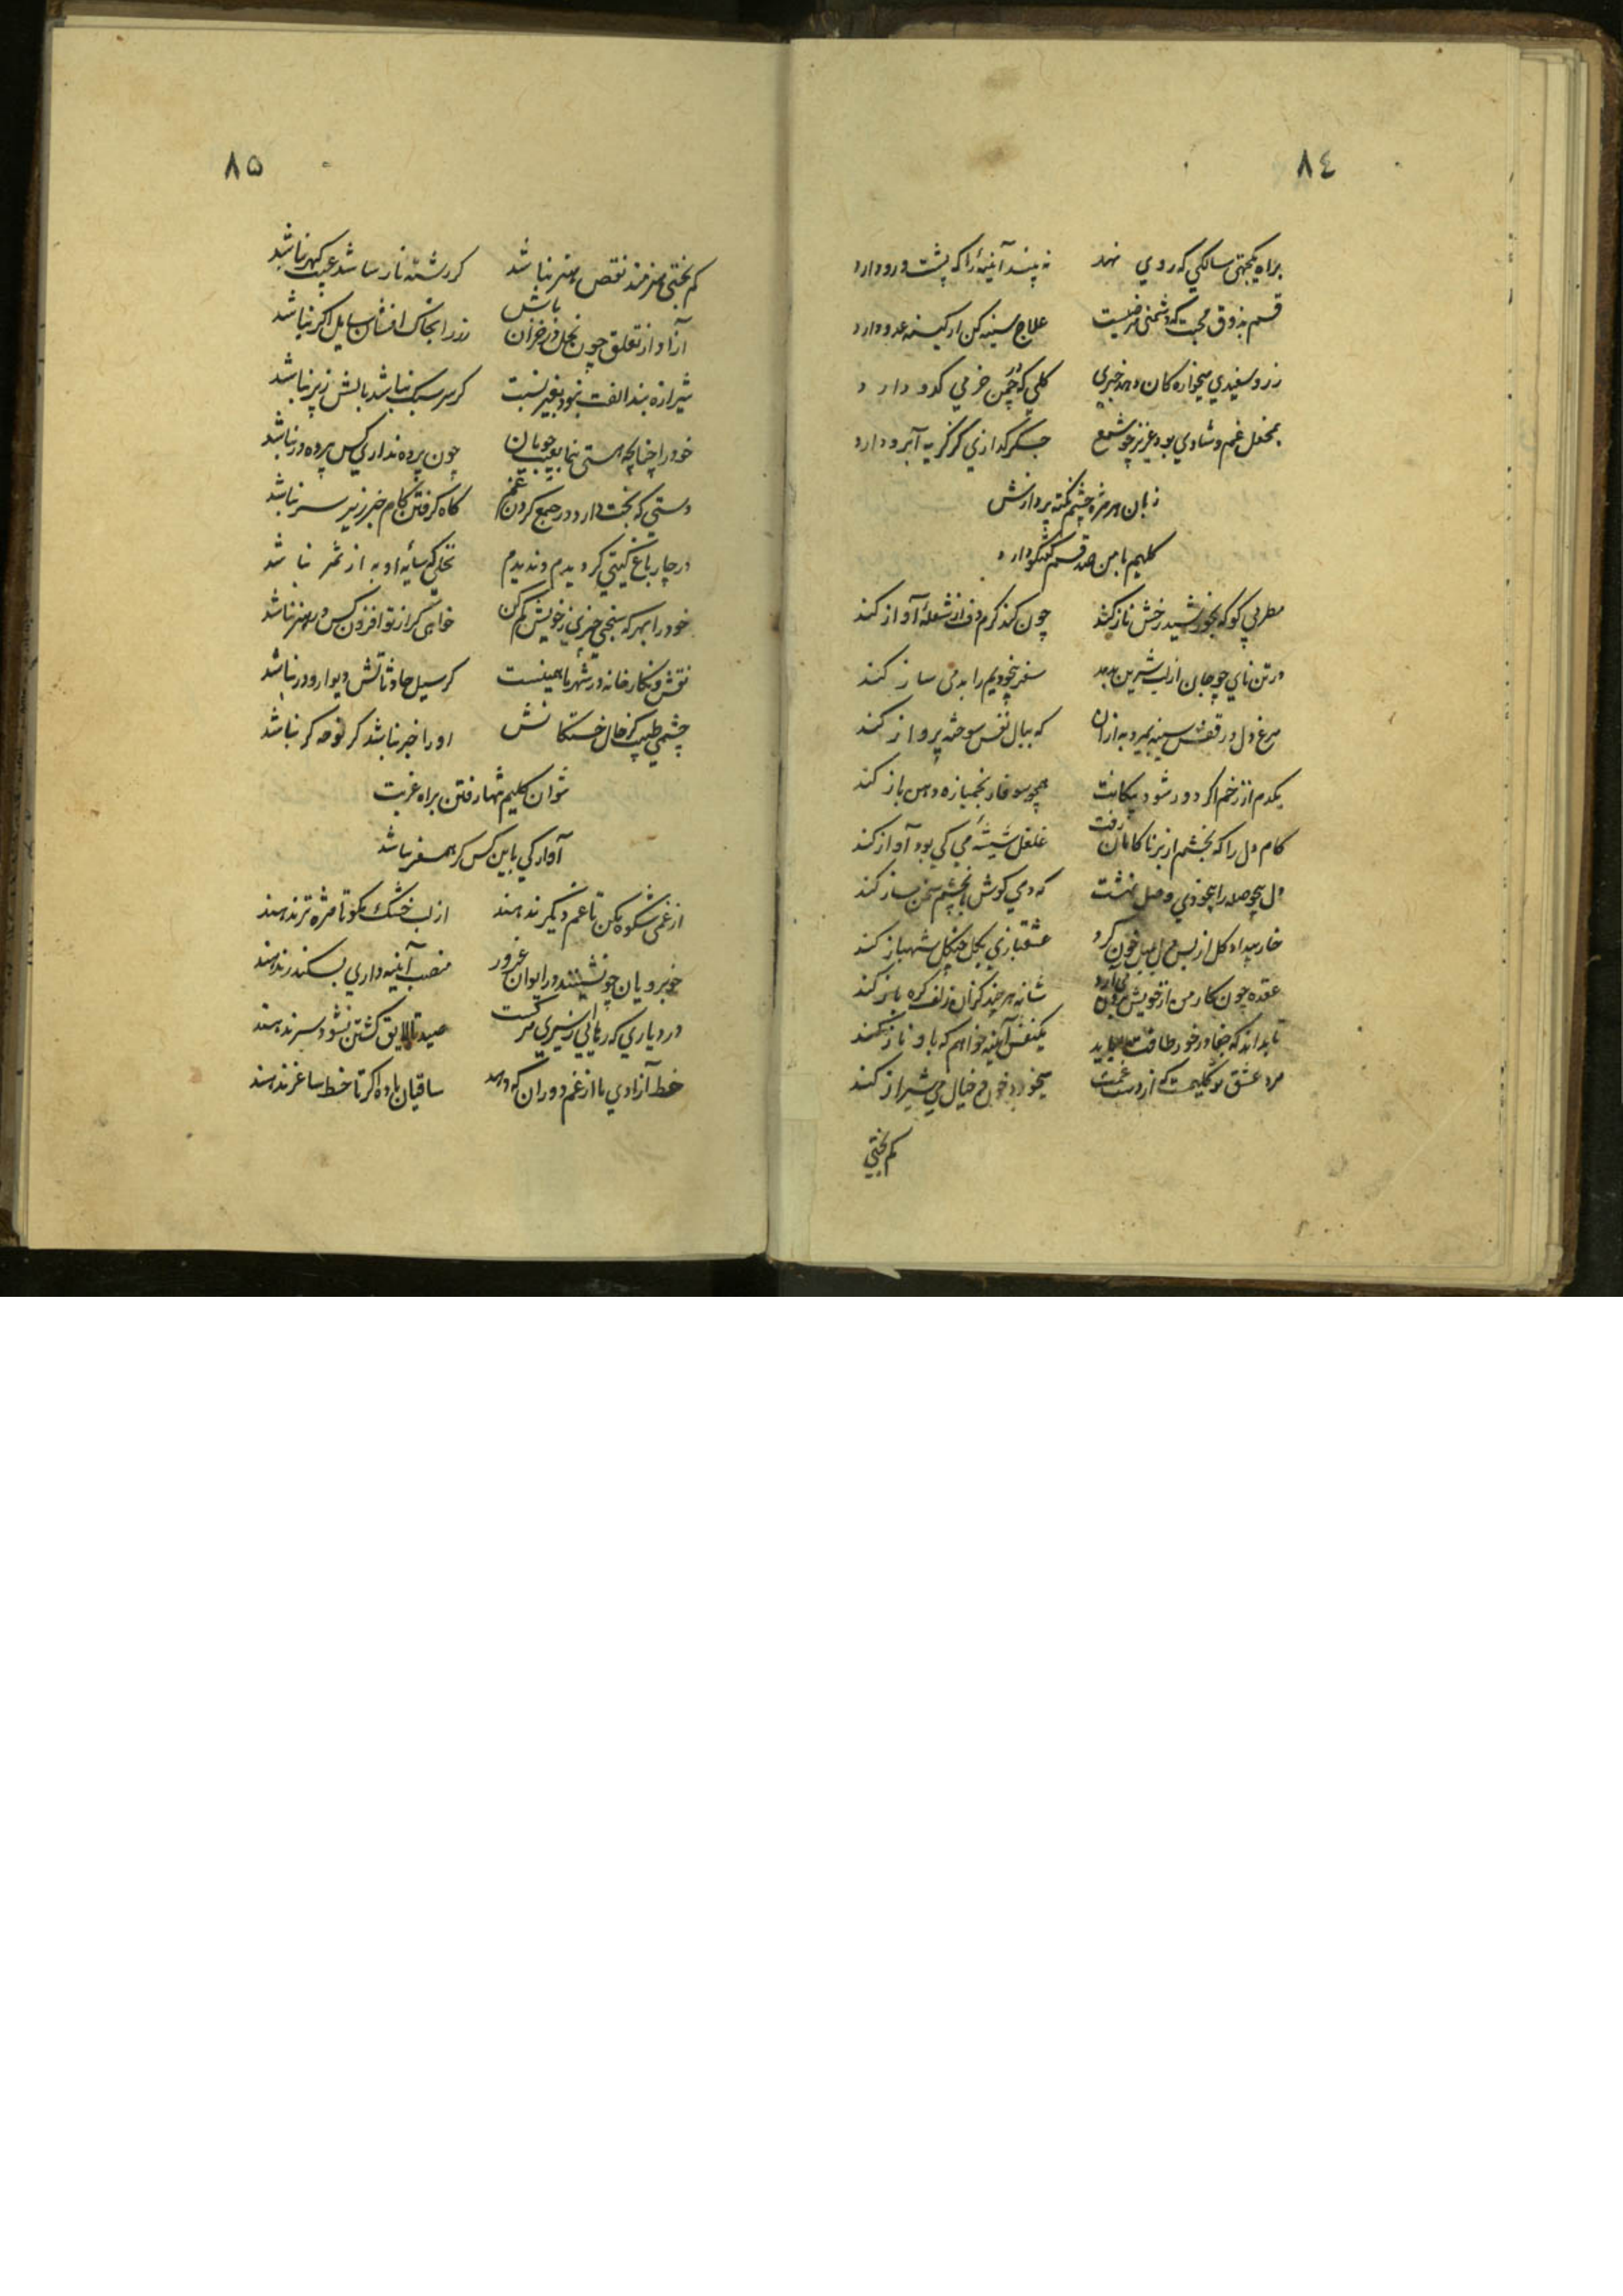 ٨٤
براه یکجهتی سالکی که روی نهد نه بیند آئینهٔ را که پشت و رو دارد
قسم بذوق محبت که دشمنی مرضیست علاج سینه کن ار کینهٔ عدو دارد
ز رو سفیدی میخواره کان دهد خبری کلی که در چمن خرمی کدو دارد
بمحفل غم و شادی بود عزیز چو شمع جکر کدازی کز کریه آبرو دارد
زبان هر مژه چشم نکته پردازش
کلیم با من صد قسم کفتکو دارد
مطربی کو که بخورشید رخش ناز کند چون کند کرم دف از شعلهٔ آواز کند
در تن نای چو جان از لب شیرین دمد سفر بیخودیم را بدمی ساز کند
مرغ دل در قفس سینه بمیرد به ازان که ببال نفس سوخته پرواز کند
یکدم از زخم اکر دور شود پیکانت همچو سوفار بخمیازه دهن باز کند
کام دل را که بخشم از بر ناکامان رفت غلغل شیشهٔ می کی بود آواز کند
دل بیحوصله را بیخودی وصل نهشت که دمی کوش بچشم سخن ساز کند
خار بیداد کل از بس دل بلبل خون کرد عشقبازی بکل چنکل شهباز کند
عقده چون کار من از خویش برون می آرد شانه هر چند کز ان زلف کره باز کند
تا بداند که جفا در خور طاقت باید یکنفس آینه خواهم که باو ناز کند
مرد عشق تو کلیمست که از دست غمت میخورد خون و خیال می شیراز کند
کم بختی
٨٥
کم بختی هنرمند نقص هنر نباشد کر رشته نارسا شد عیب کهر نباشد
آزاد از تعلق چون نخل در خزان باش زر را بخاک افشان سایل اکر نباشد
شیرازه بند الفت نبود بغیر نسبت کر سر سبک نباشد بالش ز پر نباشد
خود را چنانچه هستی بنما بعیب جویان چون پرده نداری کس پرده در نباشد
دستی که بخت دارد در جمع کردن غم کاه کرفتن کام جز زیر سر نباشد
در چار باغ کیتی کردیدم و ندیدم نخلی که سایه او به از ثمر نباشد
خود را بهر که سنجی چیزی ز خویش کم کن خواهی کر از تو افزون کس در هنر نباشد
نقش و نکار خانه در شهر ما همینست کر سیل حادثاتش دیوار و در نباشد
چشمی طبیب کز حال خستکانش او را خبر نباشد کر نوحه کر نباشد
نتوان کلیم تنها رفتن براه غربت
آوارکی باین کس کر همسفر نباشد
از غمی شکوه مکن تا غم دیکر ندهند از لب خشک مکو تا مژه تر ندهند
خوبرویان چو نشینند در ایوان غرور منصب آینه داری بسکندر ندهند
در دیاری که رهایی ز اسیری مرکست صید تا لایق کشتن نشود سر ندهند
خط آزادی ما از غم دوران که دهد ساقیان باده اکر تا خط ساغر ندهند